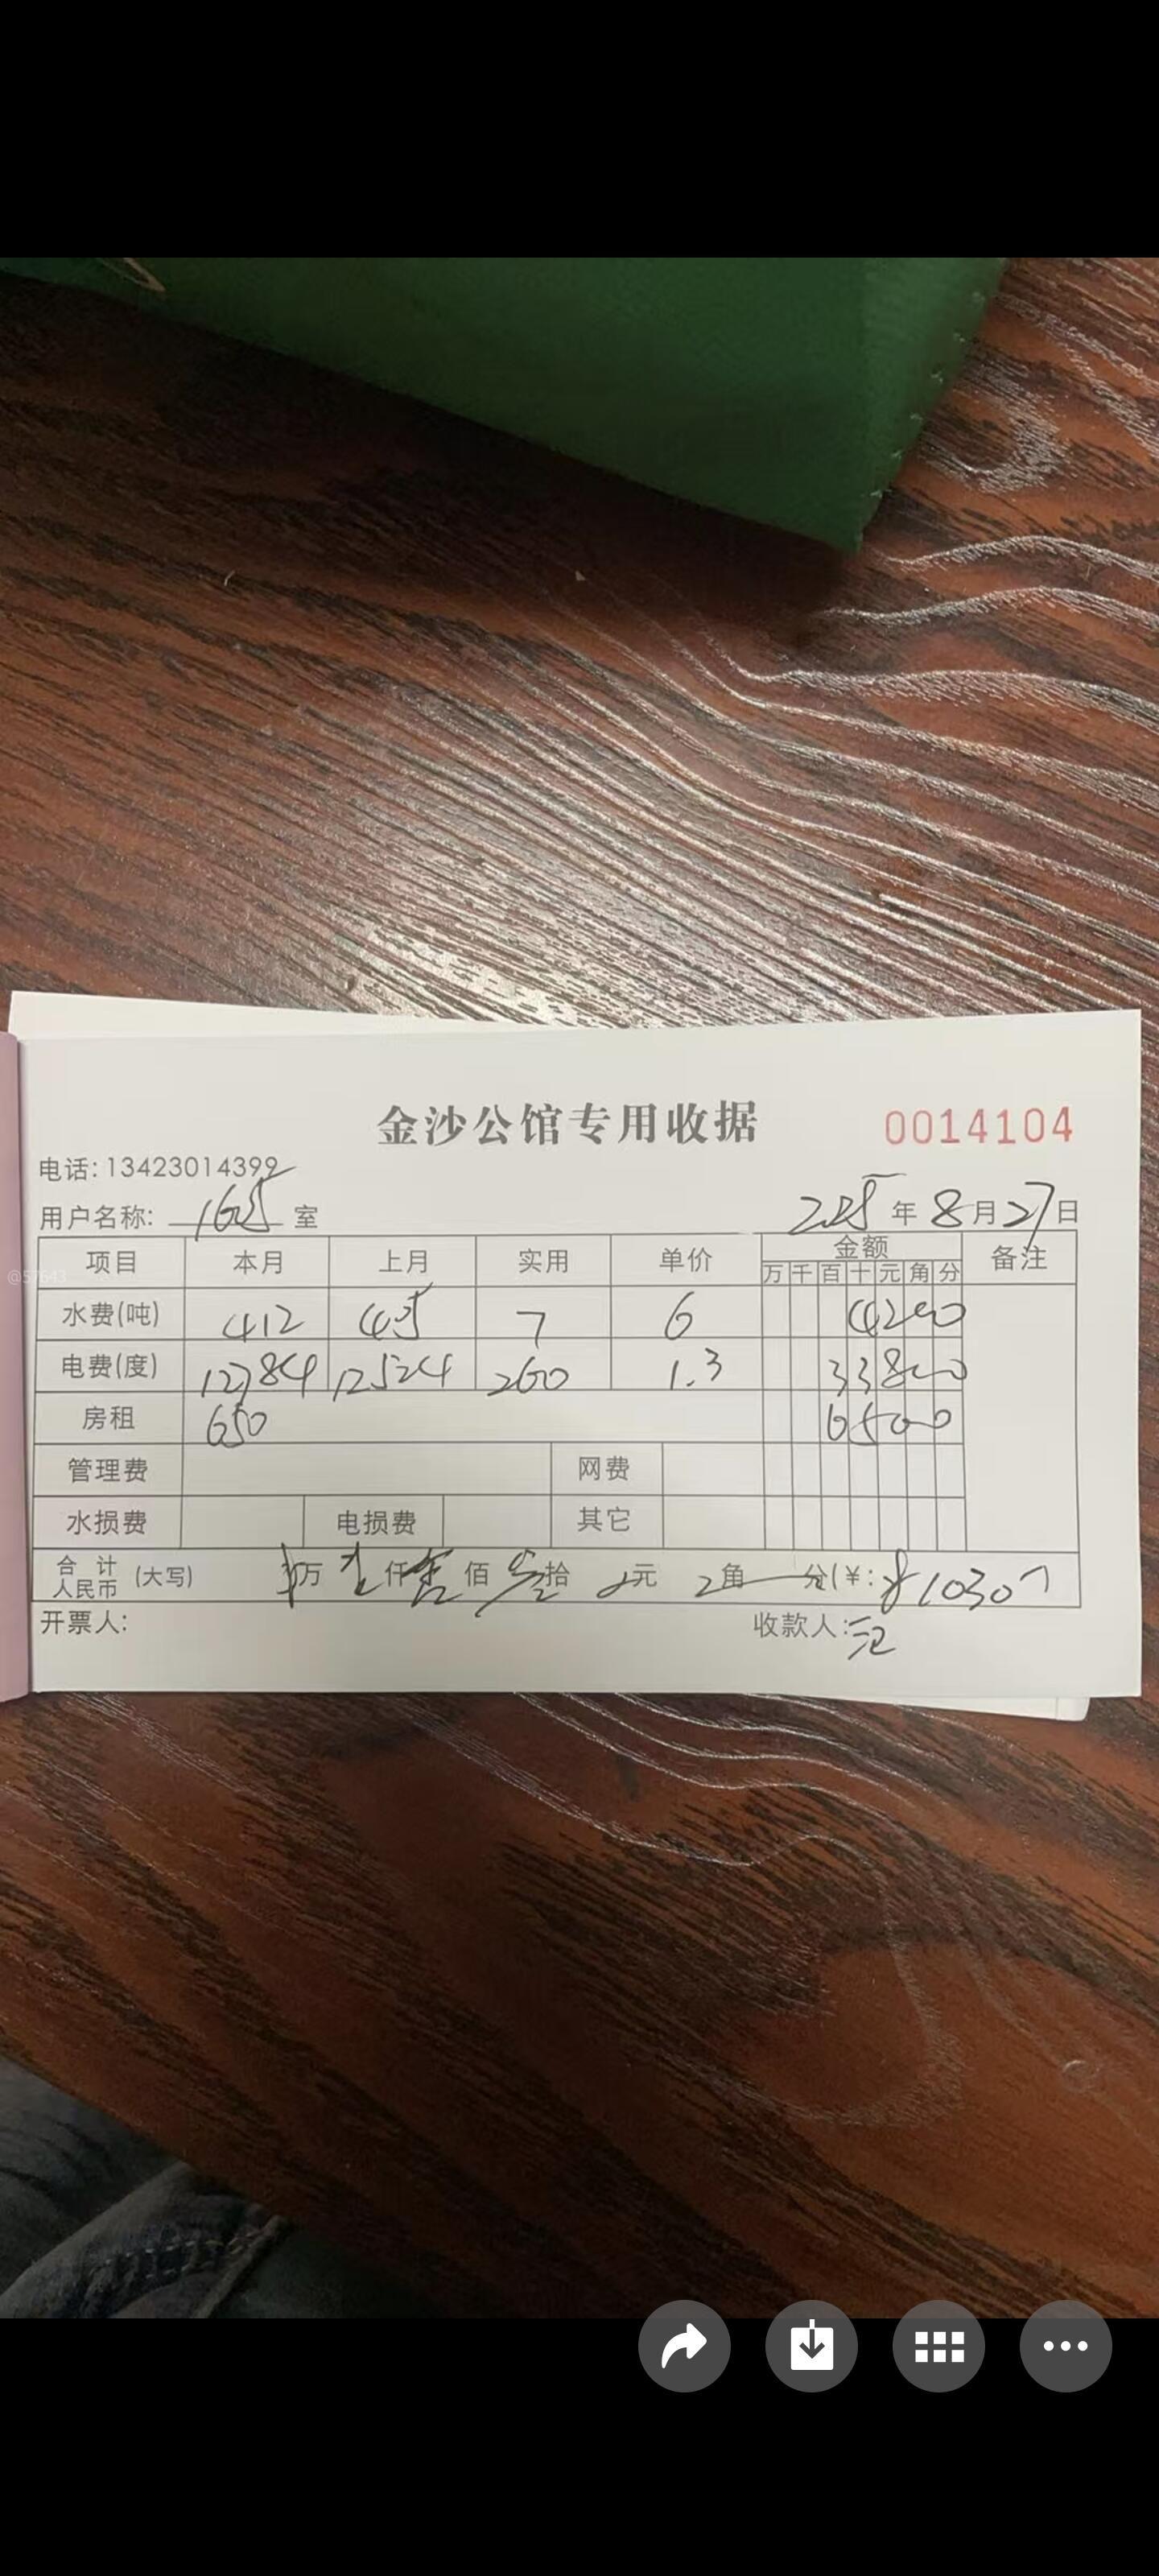 金沙公馆专用收据 0014104
电话:13423014399
用户名称: 1605 室 2025 年 8 月 27 日
项目 本月 上月 实用 单价 金额 备注
万 千 百 十 元 角 分
水费(吨) 412 405 7 6 4200
电费(度) 12784 12524 260 1.3 33800
房租 650 65000
管理费 网费
水损费 电损费 其它
合计人民币 (大写) 万 壹 仟 零 佰 叁 拾 0 元 0 角 分(¥: ¥1030
开票人: 收款人:
@57643